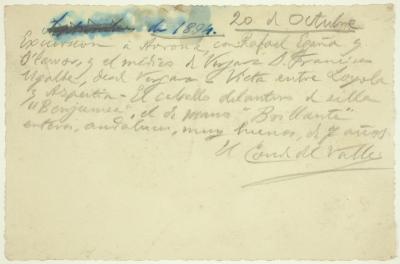 Septiembre de 1894. 20 de Octubre
Excursion á Arrona, con Rafael Egaña y
y el médico de Vergara D. Francisco
Ugalde, desde Vergara - Vista entre Loyola
y Azpeitia - El caballo delantero de silla
"Benjumea", el de mano "Brillante"
enteros, andaluces, muy buenos, de 7 años
El Conde del Valle